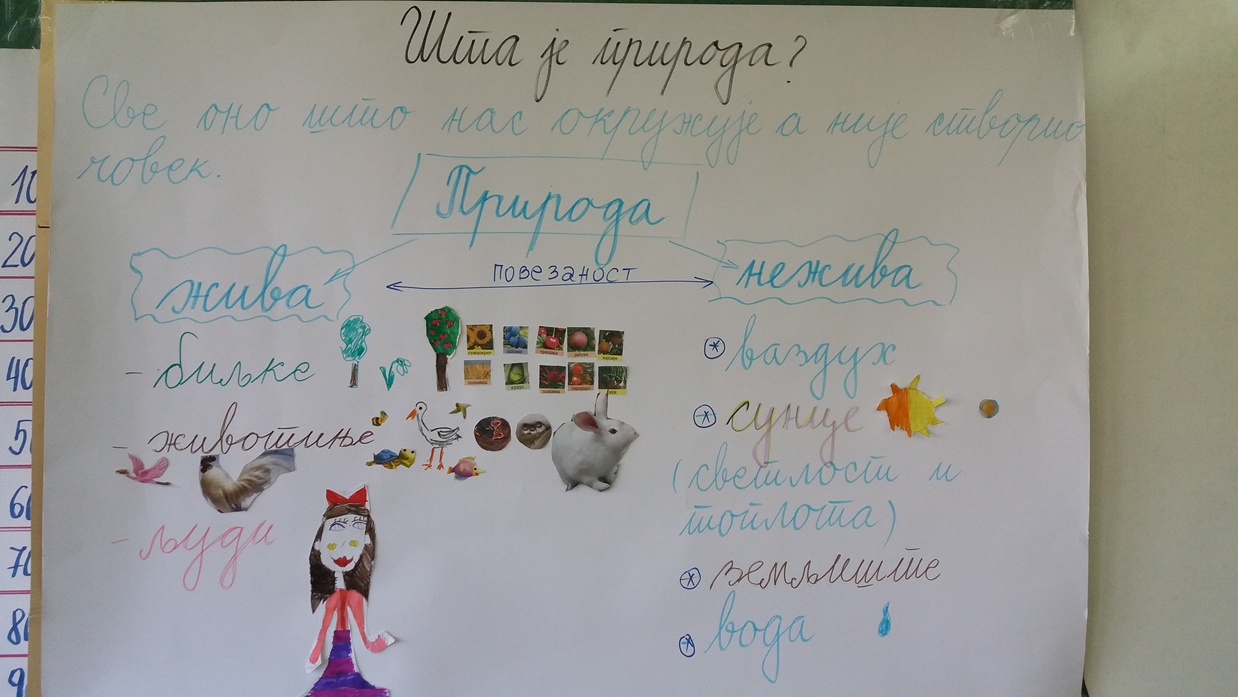 Шта је природа?
Све оно што нас окружује а није створио
човек.
Природа
жива
повезаност
нежива
- биљке
- животиње
- људи
ваздух
сунце
(светлост и
топлота)
земљиште
вода
10
20
30
40
5
60
70
80
9